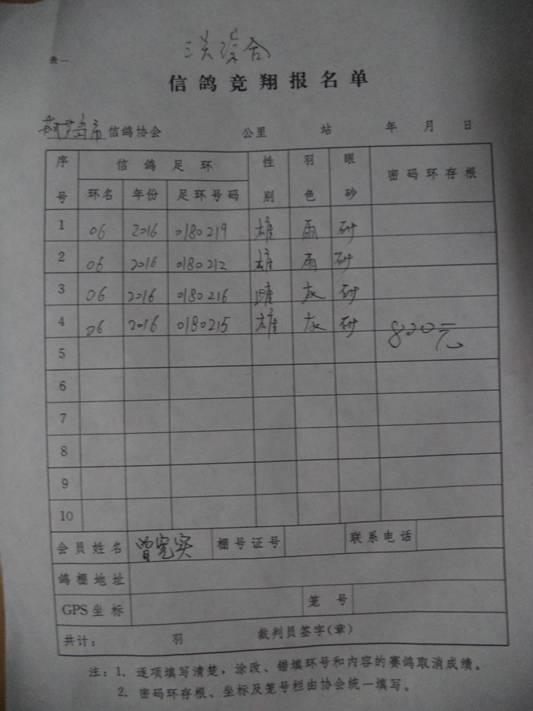 表一
三关综合
信鸽竞翔报名单
葫芦岛市信鸽协会 公里 站 年 月 日
序号 信鸽足环 性别 羽色 眼砂 密码环存根
环名 年份 足环号码
1 06 2016 0180219 雄 雨 砂
2 06 2016 0180212 雄 雨 砂
3 06 2016 0180216 雌 灰 砂
4 06 2016 0180215 雄 灰 砂 800元
5
6
7
8
9
10
会员姓名 曾宪实 棚号证号 联系电话
鸽棚地址
GPS坐标 笼号
共计: 羽 裁判员签字(章)
注:1. 逐项填写清楚,涂改、错填环号和内容的赛鸽取消成绩。
2. 密码环存根、坐标及笼号栏由协会统一填写。